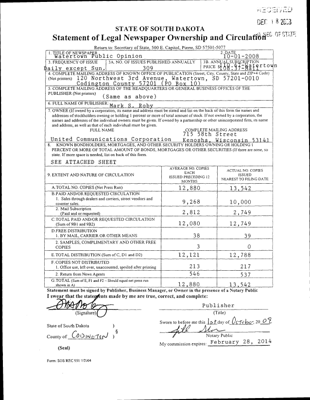 RECEIVED
STATE OF SOUTH DAKOTA
Statement of Legal Newspaper Ownership and Circulation
Return to: Secretary of State, 500 E. Capitol, Pierre, SD 57501-5077
1. TITLE OF NEWSPAPER
Watertown Public Opinion
2. DATE
10-01-2008
3. FREQUENCY OF ISSUE
Daily except Sun.
3A. NO. OF ISSUES PUBLISHED ANNUALLY
309
3B. ANNUAL SUBSCRIPTION PRICE
4. COMPLETE MAILING ADDRESS OF KNOWN OFFICE OF PUBLICATION (Street, City, County, State and ZIP+4 Code) (Not printers)
120 Northwest 3rd Avenue, Watertown, SD 57201-0010
Codington County 57201 (PO Box 10)
5. COMPLETE MAILING ADDRESS OF THE HEADQUARTERS OF GENERAL BUSINESS OFFICES OF THE PUBLISHER (Not printer)
(Same as above)
6. FULL NAME OF PUBLISHER:
Mark S. Roby
7. OWNER (If owned by a corporation, its name and address must be stated and also the names and addresses of stockholders owning or holding 1 percent or more of total amount of stock. If not owned by a corporation, the names and addresses of the individual owners must be given. If owned by a partnership or other unincorporated firm, its name and address, as well as that of each individual must be given.
FULL NAME
COMPLETE MAILING ADDRESS
715 58th Street
United Communications Corporation
Kenosha, Wisconsin 53141
8. KNOWN BONDHOLDERS, MORTGAGES, AND OTHER SECURITY HOLDERS OWNING OR HOLDING 1 PERCENT OR MORE OF TOTAL AMOUNT OF BONDS, MORTGAGES OR OTHER SECURITIES (If there are none, so state. If more space is needed, list on back of this form
SEE ATTACHED SHEET
9. EXTENT AND NATURE OF CIRCULATION
AVERAGE NO. COPIES EACH ISSUED PRECEDING 12 MONTHS
ACTUAL NO. COPIES ISSUED NEAREST TO FILING DATE
A. TOTAL NO. COPIES (Net Press Run) 12,880 13,542
B. PAID AND/OR REQUESTED CIRCULATION
1. Sales through dealers and carriers, street vendors and counter sales. 9,268 10,000
2. Mail Subscription (Paid and/or requested) 2,812 2,749
C. TOTAL PAID AND/OR REQUESTED CIRCULATION (Sum of 9B1 and 9B2) 12,080 12,749
D. FREE DISTRIBUTION
1. BY MAIL, CARRIER OR OTHER MEANS 38 39
2. SAMPLES, COMPLIMENTARY AND OTHER FREE COPIES 3 0
E. TOTAL DISTRIBUTION (Sum of C, D1 and D2) 12,121 12,788
F. COPIES NOT DISTRIBUTED
1. Office use, left over, unaccounted, spoiled after printing 213 217
2. Return from News Agents 546 537
G. TOTAL (Sum of E, F1 and F2 - Should equal net press run shown in A) 12,880 13,542
Statement must be signed by Publisher, Business Manager, or Owner in the presence of a Notary Public
I swear that the statements made by me are true, correct, and complete:
Publisher
(Signature)
(Title)
State of South Dakota )
Sworn to before me this 1st day of October 20
County of Codington )
Notary Public
(Seal)
My commission expires: February 28, 2014